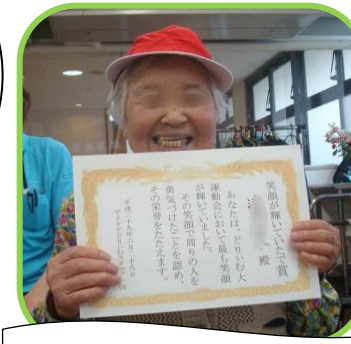 笑顔が輝いていたで賞
殿
あなたは、どりぃむ大
運動会において最も笑顔
が輝いていました
その笑顔で周りの人を
勇気づけたことを認め、
その栄誉をたたえます。
平成